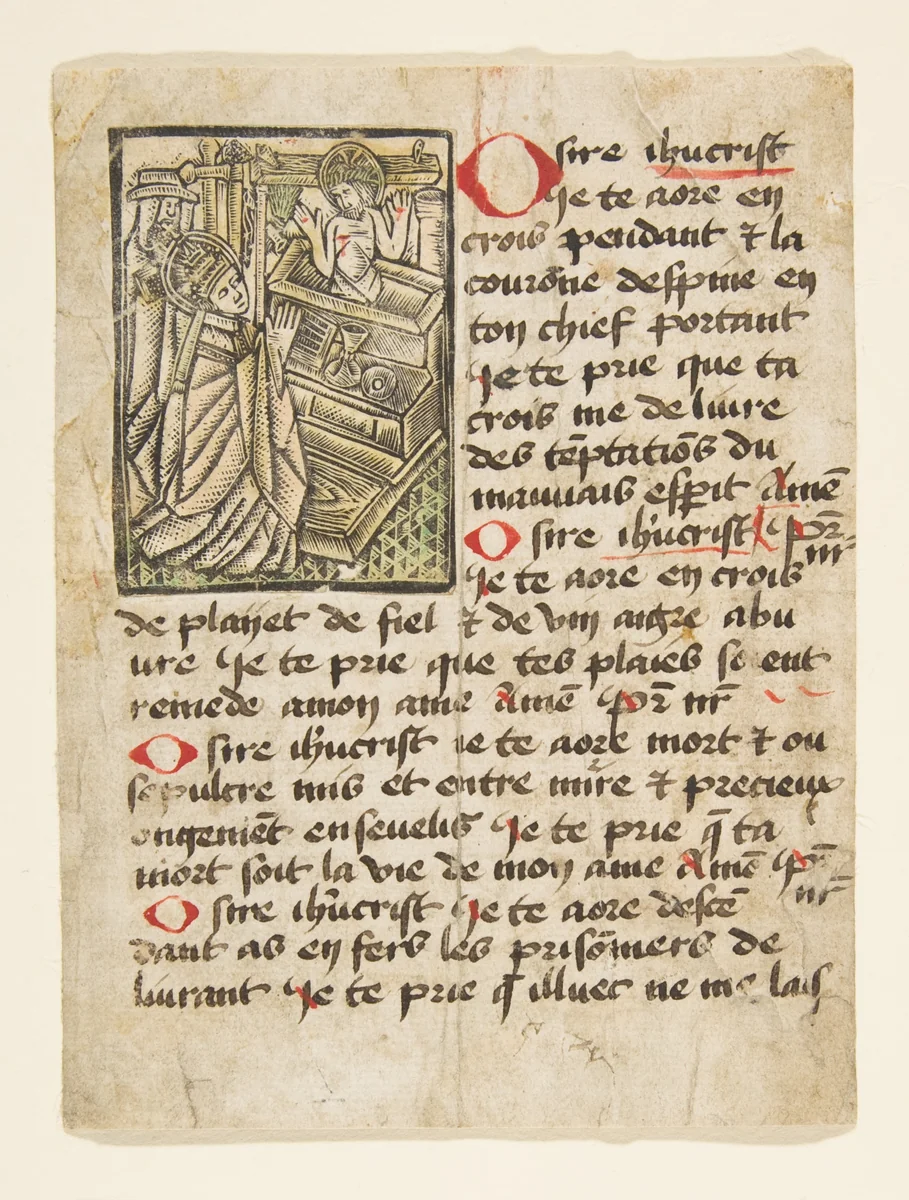 O sire ihucrist
Je te aore en
crois pendant ⁊ la
courōne despine en
ton chief portant
Je te prie que ta
crois me deliure
des tēptatiōs du
mauuais esperit Amē
O sire ihūcrist Pr̄
nr̄
Je te aore en crois
de playet de fiel ⁊ de vin aigre abu
ure Je te prie que tes plaies soient
remede amon ame Amē Pr̄ nr̄
O sire ihūcrist ie te aore mort ⁊ ou
sepulcre mis et entre mirre ⁊ precieux
ongemēt enseuelis Je te prie q̄ ta
mort soit la vie de mon ame Amē Pr̄
nr̄
O sire ihūcrist Je te aore descē
dant as enfers les prisōniers de
liurant Je te prie q̄ illuec ne me lais